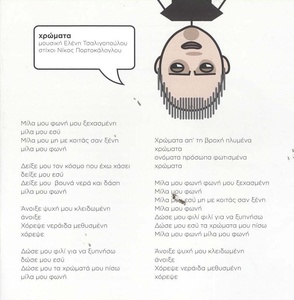 χρώματα
μουσική Ελένη Τσαλιγοπούλου
στίχοι Νίκος Πορτοκάλογλου
Μίλα μου φωνή μου ξεχασμένη
μίλα μου εσύ
Μίλα μου μη με κοιτάς σαν ξένη
μίλα μου φωνή
Δείξε μου τον κόσμο που έχω χάσει
δείξε μου εσύ
Δείξε μου βουνά νερά και δάση
μίλα μου φωνή
Άνοιξε ψυχή μου κλειδωμένη
άνοιξε
Χόρεψε νεράιδα μεθυσμένη
χόρεψε
Δώσε μου φιλί για να ξυπνήσω
δώσε μου εσύ
Δώσε μου τα χρώματά μου πίσω
μίλα μου φωνή
Χρώματα απ' τη βροχή πλυμένα
χρώματα
ονόματα πρόσωπα φωτισμένα
χρώματα
Μίλα μου φωνή μου ξεχασμένη
Μίλα μου φωνή
Μίλα μου εσύ μη με κοιτάς σαν ξένη
Μίλα μου φωνή
Δώσε μου φιλί φιλί για να ξυπνήσω
Δώσε μου εσύ τα χρώματα μου πίσω
Μίλα μου φωνή μίλα μου φωνή
Άνοιξε ψυχή μου κλειδωμένη
άνοιξε
Χόρεψε νεράιδα μεθυσμένη
χόρεψε